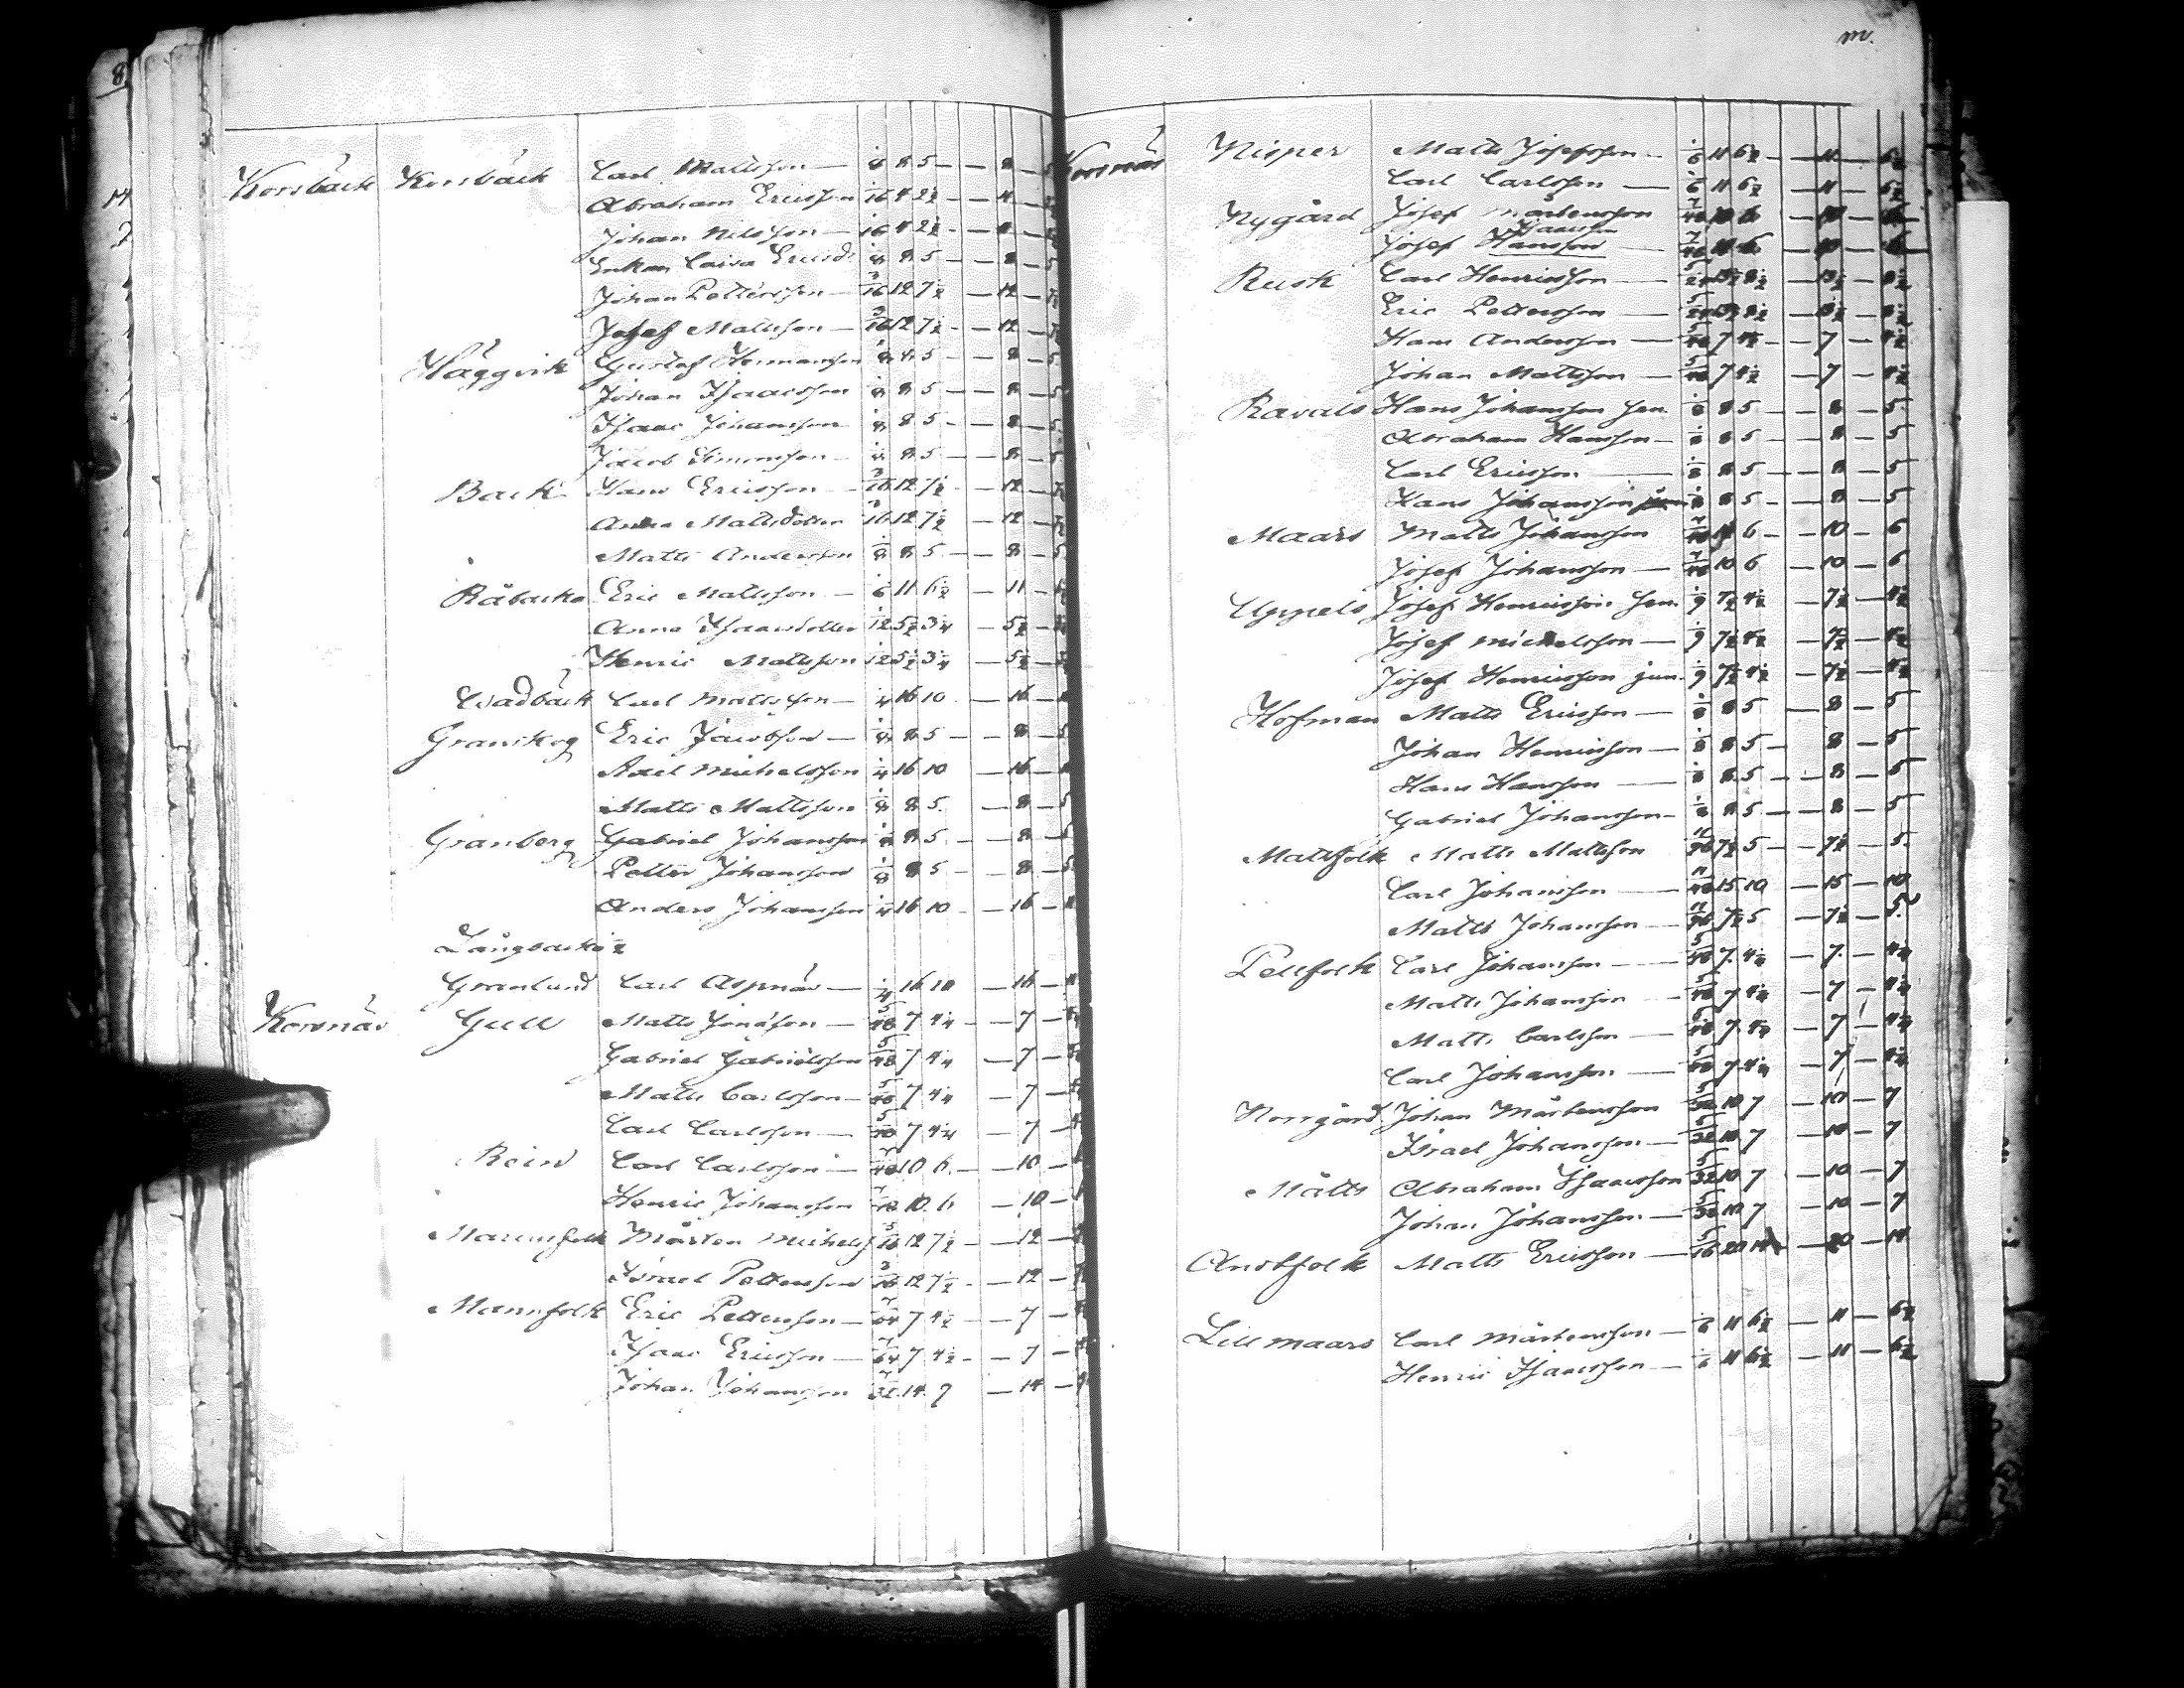 8.
Korsbäck Korsbäck Carl Mattsson — 1/8 8 5 — — 8 — 5
Abraham Ericsson 1/16 4 2 1/2 — — 4 —
Johan Nilsson — 1/16 4 2 1/2 — — 4 —
Enkan Caisa Ericsd: 1/8 8 5 — — 8 — 5
Johan Pettersson — 3/16 12 7 1/2 — 12 —
Josef Mattsson — 3/16 12 7 1/2 — — 12 —
Häggvik Gustaf Hermansson 1/8 8 5 — — 8 — 5
Johan Isaacsson 1/8 8 5 — — 8 — 5
Isaac Johansson 1/8 8 5 — — 8 — 5
Jacob Simonsson — 1/8 8 5 — — 8 — 5
Back Hans Ericsson — 3/16 12 7 1/2 — — 12 —
Anna Mattsdotter 3/16 12 7 1/2 — 12 —
Matts Andersson 1/8 8 5 — — 8 — 5
Råbacka Eric Mattsson — 1/6 11 6 1/2 — 11 —
Anna Isaacsdotter 1/12 5 1/2 3 1/4 — 5 1/2 —
Henric Mattsson 1/12 5 1/2 3 1/4 — 5 1/2 —
Wadbäck Carl Mattsson — 1/4 16 10 — 16 —
Granskog Eric Jacobsson — 1/8 8 5 — — 8 — 5
Axel Michelsson 1/4 16 10 — 16 —
Matts Mattsson 1/8 8 5. — 8 — 5
Granberg Gabriel Johansson 1/8 8 5 — — 8 — 5
Petter Johansson 1/8 8 5 — — 8 — 5
Anders Johansson 1/4 16 10 — — 16 —
Långbacka 1/2
Granlund Carl Aspnäs — 1/4 16 10 — 16 —
Korsnäs Gull Matts Jonasson — 5/48 7 4 1/4 — — 7 —
Gabriel Gabrielsson 5/48 7 4 1/4 — 7 —
Matts Carlsson — 5/48 7 4 1/4 — 7 —
Carl Carlsson — 5/48 7 4 1/4 — 7 —
Rein Carl Carlsson — 7/48 10 6. — — 10 —
Henric Johansson 7/48 10 6 — 10 —
Marcusfolk Mårten Michelss 3/16 12 7 1/2 — — 12 —
Israel Pettersson 3/16 12 7 1/2 — — 12 —
Mannfolk Eric Pettersson — 7/64 7 4 1/2 — — 7 —
Isaac Ericsson — 7/64 7 4 1/2 — — 7 —
Johan Johansson 7/32 14 9 — 14 —
Korsnäs Nisper Matts Josefsson — 1/6 11 6 1/2 — — 11 — 6 1/2
Carl Carlsson — 1/6 11 6 1/2 — 11 — 6 1/2
Nygård Josef Mårtensson 7/48 10 6 — 10 — 6
Isaacsson
Josef Hansson — 7/48 10 6 — 10 — 6
Rusk Carl Henricsson — 5/24 13 1/2 8 1/2 — 13 1/2 — 8 1/2
Eric Pettersson — 5/24 13 1/2 8 1/2 — 13 1/2 — 8 1/2
Hans Andersson — 5/48 7 4 1/2 — — 7 — 4 1/2
Johan Mattsson — 5/48 7 4 1/2 — 7 — 4 1/2
Ravals Hans Johansson Sen. 1/8 8 5 — — 8 — 5
Abraham Hansson — 1/8 8 5 — — 8 — 5
Carl Ericsson — 1/8 8 5 — — 8 — 5
Hans Johansson jun 1/8 8 5 — — 8 — 5
Maars Matts Johansson 7/48 10 6 — — 10 — 6
Josef Johansson — 7/48 10 6 — 10 — 6
Uppels Josef Henricsson Sen. 1/9 7 1/2 4 1/2 — 7 1/2 — 4 1/2
Josef Michelsson — 1/9 7 1/2 4 1/2 — 7 1/2 — 4 1/2
Josef Henricsson jun. 1/9 7 1/2 4 1/2 — 7 1/2 — 4 1/2
Hofman Matts Ericsson — 1/8 8 5 — 8 — 5
Johan Henricsson — 1/8 8 5 — 8 — 5
Hans Hansson — 1/8 8 5 — — 8 — 5
Gabriel Johansson — 1/8 8 5 — — 8 — 5
Mattsfolk Matts Mattsson 11/96 7 1/2 5 — — 7 1/2 — 5.
Carl Johansson — 11/48 15 10 — 15 — 10
Matts Johansson — 11/96 7 1/2 5 — 7 1/2 — 5.
Pellfolk Carl Johansson — 5/48 7. 4 1/4 — 7. — 4 1/4
Matts Johansson — 5/48 7 4 1/4 — 7 — 4 1/4
Matts Carlsson — 5/48 7. 4 1/4 — 7 — 4 1/4
Carl Johansson — 5/48 7 4 1/4 — 7 — 4 1/4
Norrgård Johan Mårtensson 5/32 10 7 — 10 — 7
Israel Johansson — 5/32 10 7 — 10 — 7
Mätts Abraham Isaacsson 5/32 10 7 — 10 — 7
Johan Johansson — 5/32 10 7 — 10 — 7
Anstfolk Matts Ericsson — 5/16 20 14 — 20 — 14
Lill maars Carl Mårtensson — 1/6 11 6 1/2 — 11 — 6 1/2
Henric Isaacsson — 1/6 11 6 1/2 — 11 — 6 1/2